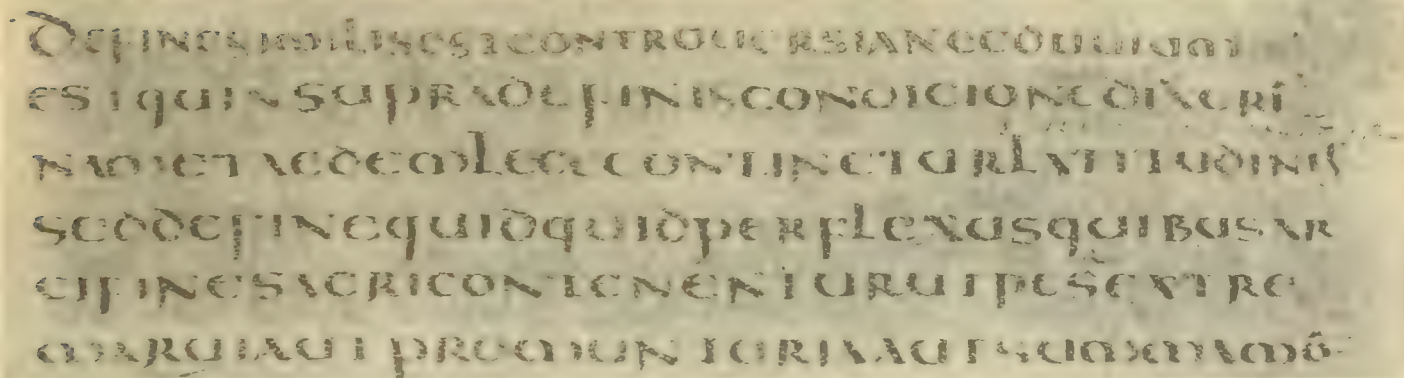 DEFINESIMILISESTCONTROUERSIANEC
ESTQUIASUPRADEFINISCONDICIONEDIXERĪ
NAMETAEDEMLEGECONTINETURLATITUDINIS
SEDDEFINEQUIDQUIDPERFLEXUSQUIBUSAR
CIFINESAGRICONTENENTURUTPESEXTRE
MARUIAAUTPROMUNTORIAAUTSUMMAMŌ